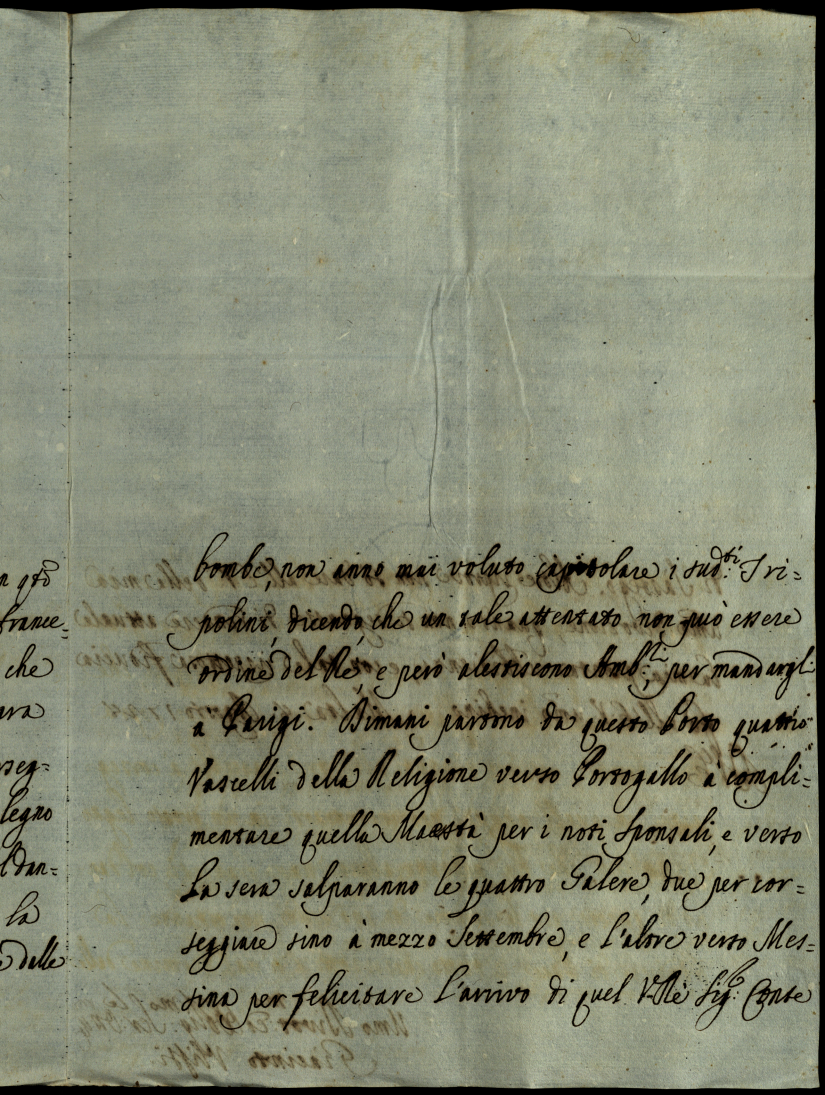 n qto
france=
che
ara
rseg=
legno
l dan=
la
e dalle
bombe, non anno mai voluto capitolare i sud.ti Tri=
polini, dicendo, che un tale attentato non può essere
ordine del Rè, e però alestiscono Amb.ri per mandargl.
à Parigi. Dimani partono da questo Porto quattro
Vascelli della Religione verso Portogallo à compli=
mentare quella Maestà per i noti sponsali, e verso
la sera salparanno le quattro Galere, due per cor=
seggiare sino à mezzo Settembre, e l'altre verso Mes=
sina per felicitare l'arrivo di quel V.Rè Sig.r Conte